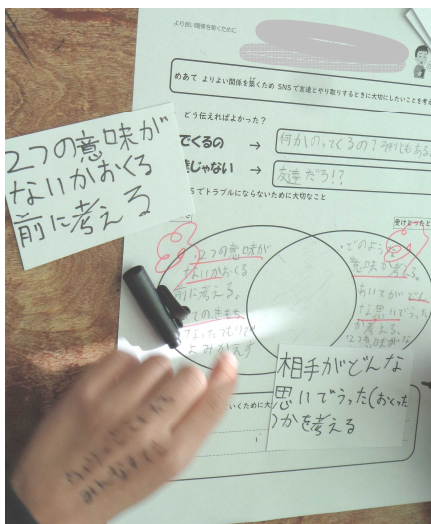 より良い関係を築くために
めあて よりよい関係を築くため SNSで友達とやり取りするときに大切にしたいことを考え
どう伝えればよかった?
でくるの → 何かのってくるの?
じゃない → 友達だろ!?
Sでトラブルにならないために大切なこと
2つの意味が
ないかおくる
前に考える
受けとったと
・2つの意味が
ないかおくる
前に考える。
てのきもち
なったつもりで
よみかえす
・どのよう
意味か考える。
あいてがどん
な思いでうった
か考える。
相手がどんな
思いでうった(おくった
)かを考える
いくために大
みんなで